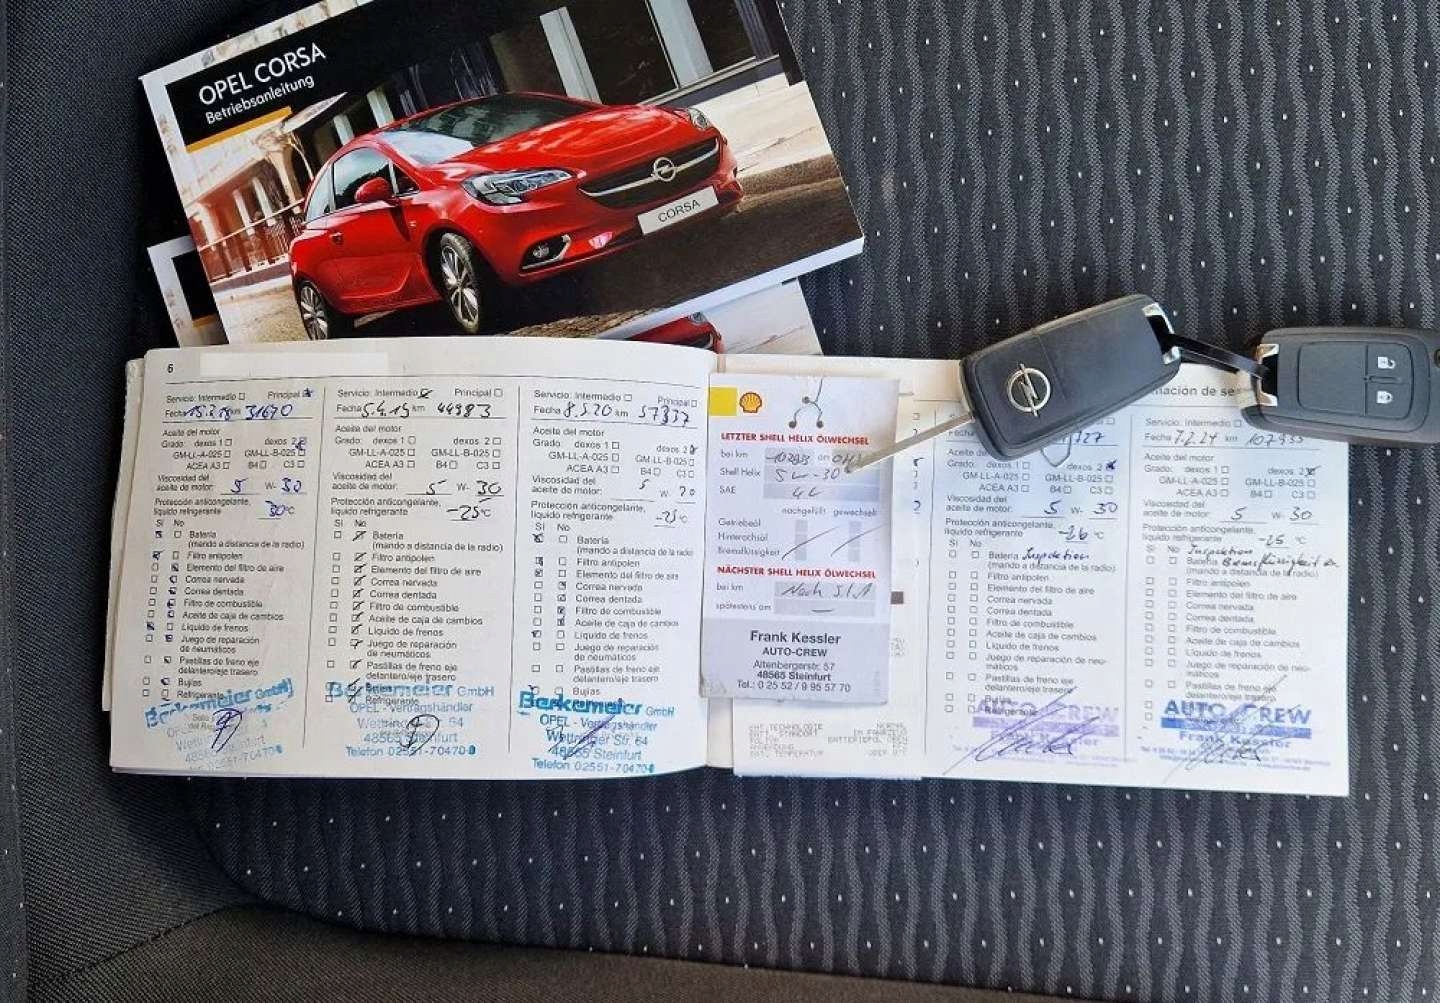 OPEL CORSA
Betriebsanleitung
CORSA
6
Servicio: Intermedio Principal
Fecha 15.2.18 km 31670
Aceite del motor
Grado: dexos 1 dexos 2
GM-LL-A-025 GM-LL-B-025
ACEA A3 B4 C3
Viscosidad del
aceite de motor: 5 W- 30
Protección anticongelante,
líquido refrigerante 30°C
Sí No
Batería
(mando a distancia de la radio)
Filtro antipolen
Elemento del filtro de aire
Correa nervada
Correa dentada
Filtro de combustible
Aceite de caja de cambios
Líquido de frenos
Juego de reparación
de neumáticos
Pastillas de freno eje
delantero/eje trasero
Bujías
Refrigerante
Berkemeier GmbH
48565 Steinfurt
Telefon 02551-70470
Servicio: Intermedio Principal
Fecha 5.4.19 km 44983
Aceite del motor
Grado: dexos 1 dexos 2
GM-LL-A-025 GM-LL-B-025
ACEA A3 B4 C3
Viscosidad del
aceite de motor: 5 W- 30
Protección anticongelante,
líquido refrigerante -25°C
Sí No
Batería
(mando a distancia de la radio)
Filtro antipolen
Elemento del filtro de aire
Correa nervada
Correa dentada
Filtro de combustible
Aceite de caja de cambios
Líquido de frenos
Juego de reparación
de neumáticos
Pastillas de freno eje
delantero/eje trasero
Bujías
Refrigerante
Berkemeier GmbH
OPEL - Vertragshändler
Wettringer Str. 64
48565 Steinfurt
Telefon 02551-70470-0
Servicio: Intermedio Principal
Fecha 8.5.20 km 57337
Aceite del motor
Grado: dexos 1 dexos 2
GM-LL-A-025 GM-LL-B-025
ACEA A3 B4 C3
Viscosidad del
aceite de motor: 5 W-
Protección anticongelante,
líquido refrigerante -25°C
Sí No
Batería
(mando a distancia de la radio)
Filtro antipolen
Elemento del filtro de aire
Correa nervada
Correa dentada
Filtro de combustible
Aceite de caja de cambios
Líquido de frenos
Juego de reparación
de neumáticos
Pastillas de freno eje
delantero/eje trasero
Bujías
Berkemeier GmbH
OPEL - Vertragshändler
Wettringer Str. 64
48565 Steinfurt
Telefon 02551-70470-0
LETZTER SHELL HELIX ÖLWECHSEL
bei km am
Shell Helix 5W-30
SAE 4L
nachgefüllt gewechselt
Getriebeöl
Hinterachsöl
Bremsflüssigkeit
NÄCHSTER SHELL HELIX ÖLWECHSEL
bei km Nach S.I.A
spätestens am
Frank Kessler
AUTO-CREW
Altenbergerstr. 57
48565 Steinfurt
Tel.: 0 25 52 / 9 95 57 70
dexos 2
GM-LL-A-025 GM-LL-B-025
ACEA A3 B4 C3
Viscosidad del
aceite de motor: 5 W- 30
Protección anticongelante,
líquido refrigerante -26 °C
Sí No
Batería Inspektion
(mando a distancia de la radio)
Filtro antipolen
Elemento del filtro de aire
Correa nervada
Correa dentada
Filtro de combustible
Aceite de caja de cambios
Líquido de frenos
Juego de reparación de neumáticos
Pastillas de freno eje
delantero/eje trasero
Bujías
AUTO-CREW
Frank Kessler
mación de se
Servicio: Intermedio
Fecha 7.2.24 km 107935
Aceite del motor
Grado: dexos 1 dexos 2
GM-LL-A-025 GM-LL-B-025
ACEA A3 B4 C3
Viscosidad del
aceite de motor: 5 W- 30
Protección anticongelante,
líquido refrigerante -25 °C
Sí No Inspektion
Batería Bremsflüssigkeit
(mando a distancia de la radio)
Filtro antipolen
Elemento del filtro de aire
Correa nervada
Correa dentada
Filtro de combustible
Aceite de caja de cambios
Líquido de frenos
Juego de reparación de neumáticos
Pastillas de freno eje
delantero/eje trasero
Bujías
AUTO-CREW
Frank Kessler